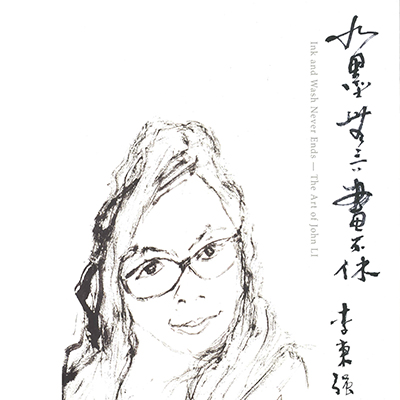 水墨無言畫不休
李東強
Ink and Wash Never Ends — The Art of John LI